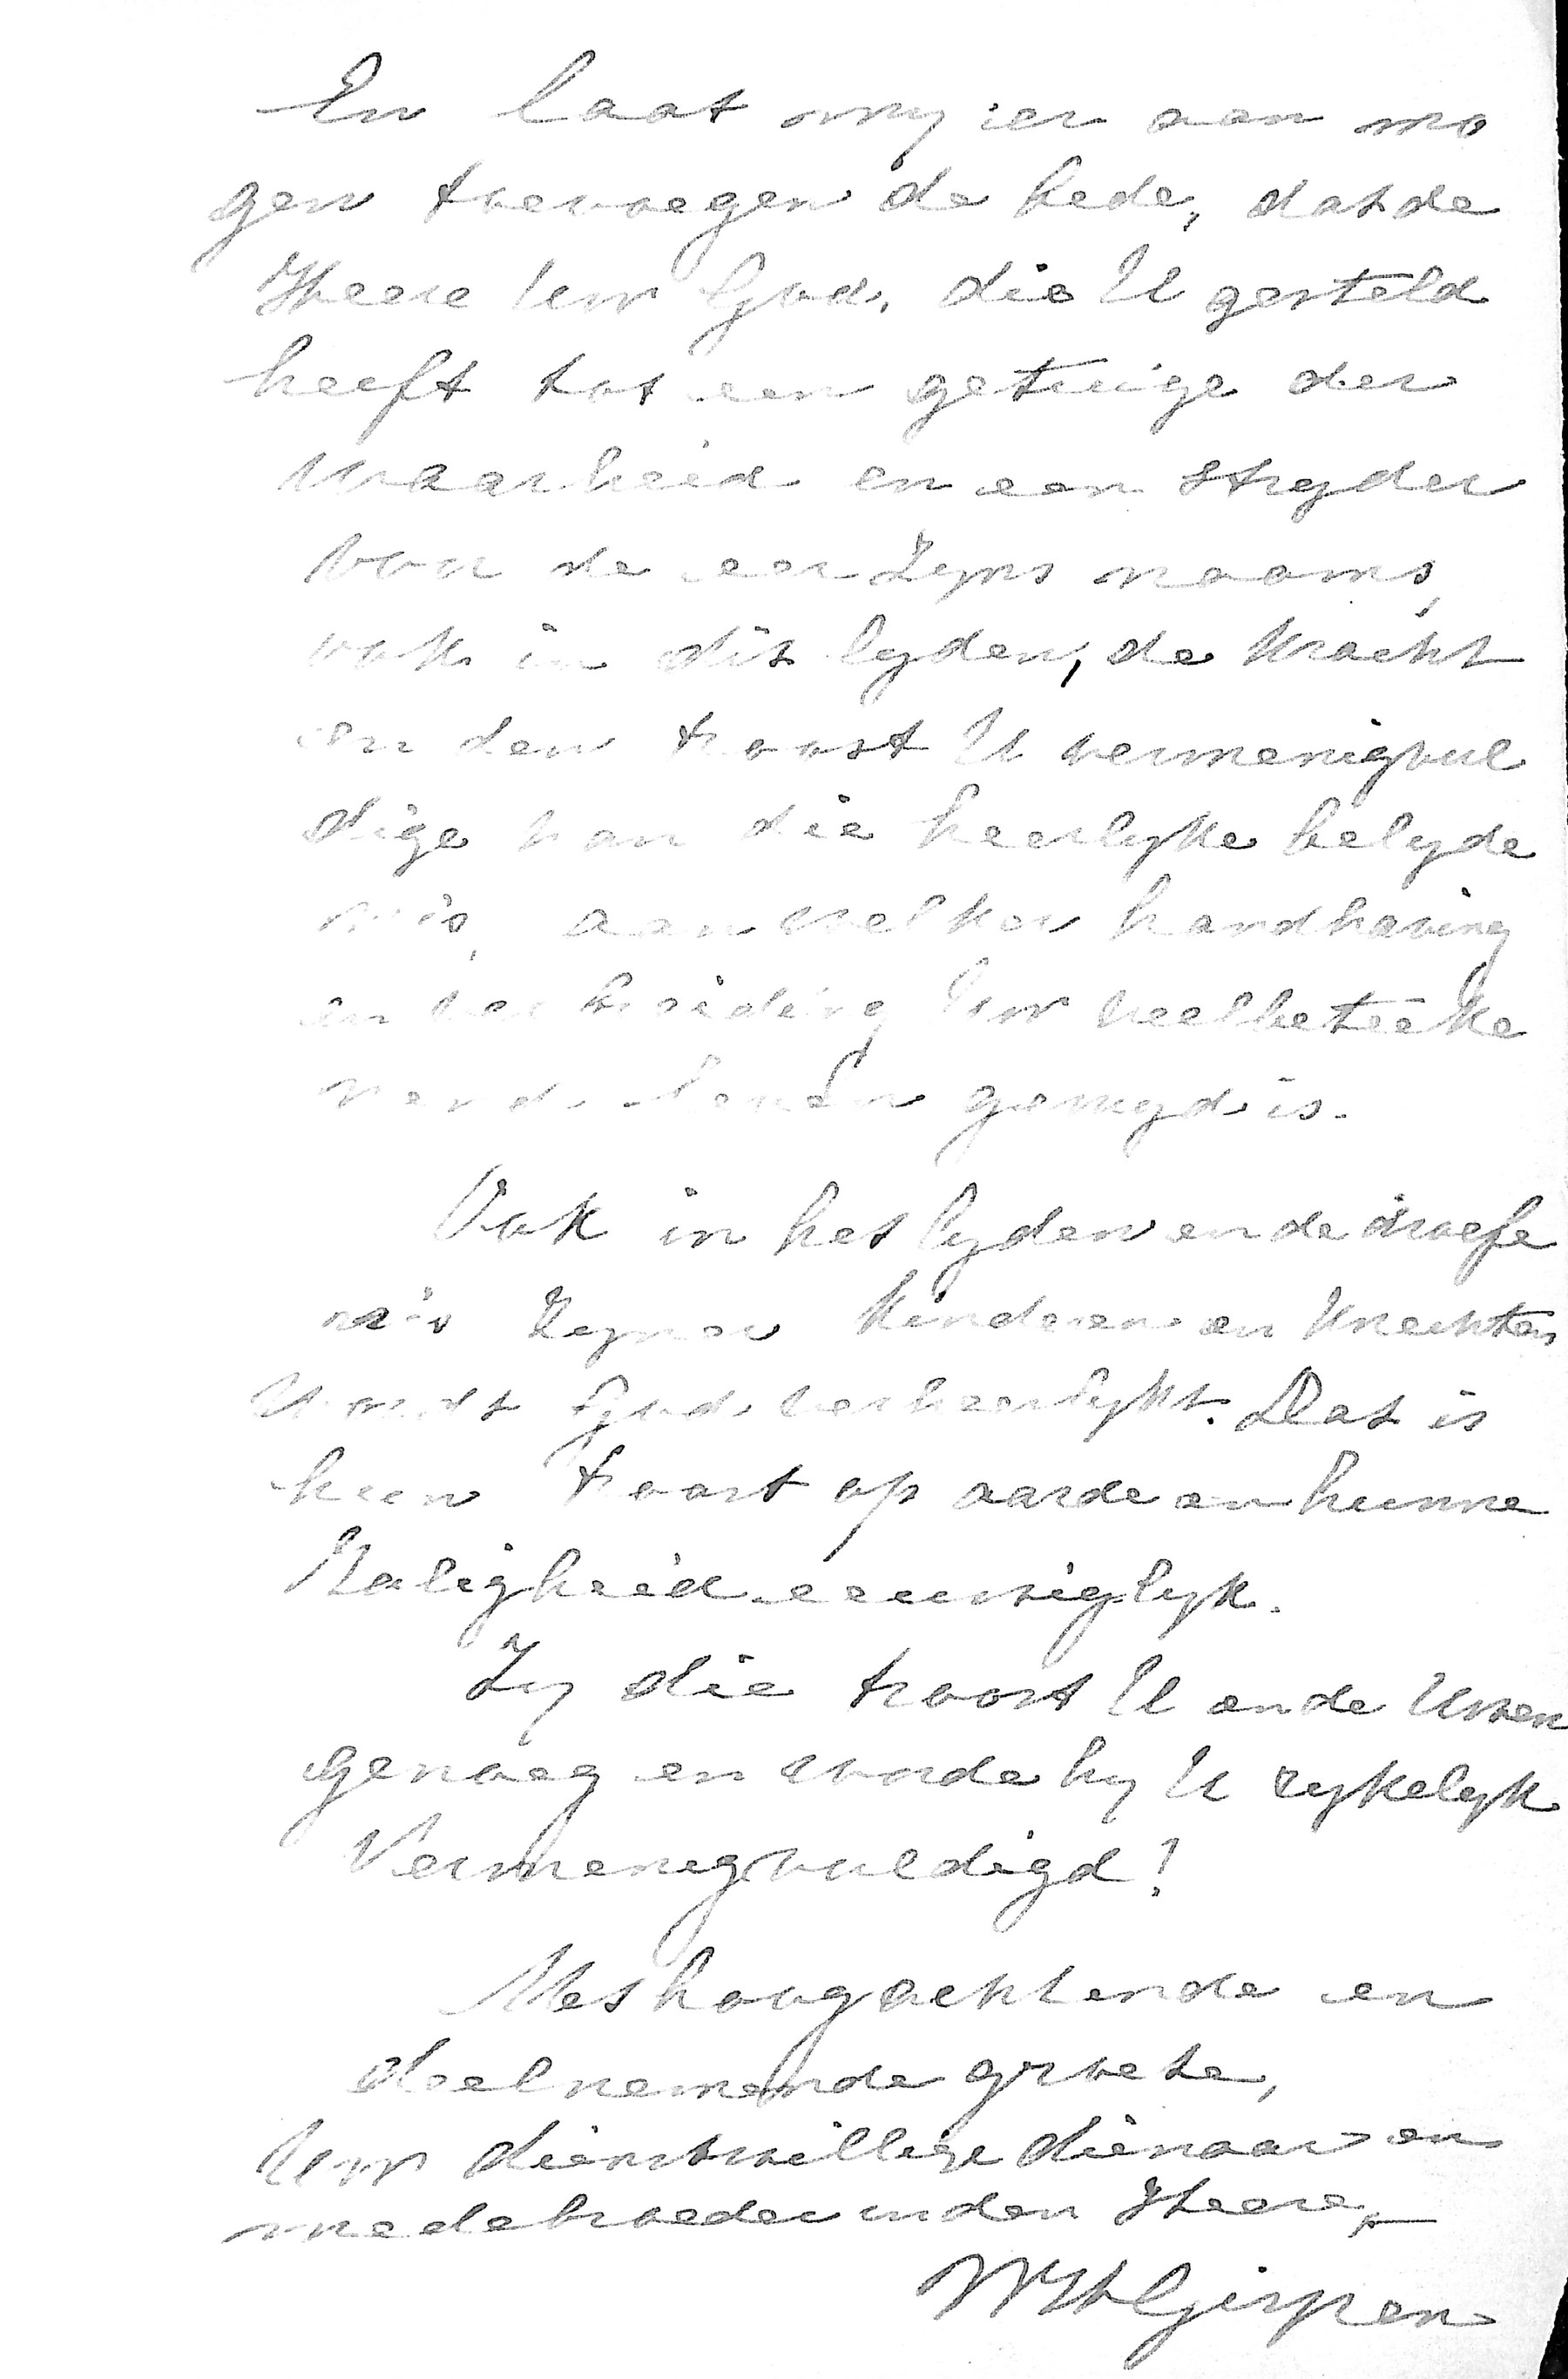 En laat my er aan mo
gen toevoegen de bede, dat de
Heere Uw God, die U gesteld
heeft tot een getuige der
waarheid en een stryder
voor de eer Zyns naams,
ook in dit lyden, de kracht
en den troost U vermenigvul
dige van die heerlyke belyde
nis, aan welker handhaving
en verbreiding Uw veelbeteeke
nend leven gewyd is.
Ook in het lyden en de droefe
nis Zyner kinderen en knechten
wordt God verheerlykt. Dat is
hun troost op aarde en hunne
Zaligheid eeuwiglyk.
Zy die troost U en de Uwen
genoeg en worde hy U rykelyk
Vermenigvuldigd!
Met hoogachtende en
deelnemende groete,
Uw dienstwillige dienaar en
medebroeder in den Heere,
WHGispen